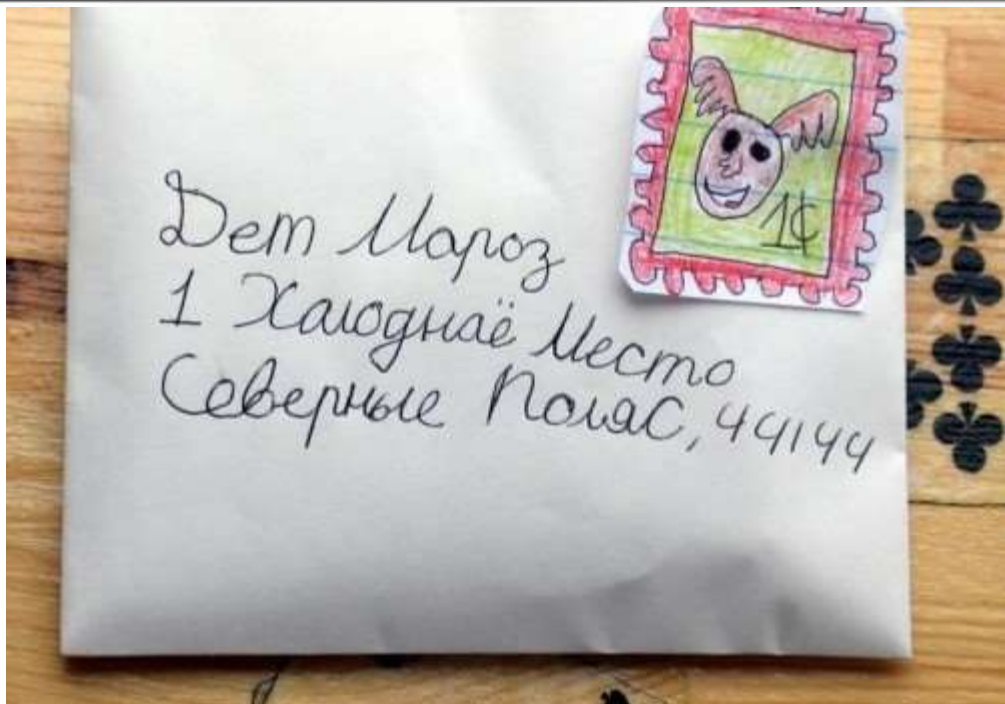 1¢
Дет Мароз
1 Халоднаё Место
Северные Поляс, 44144